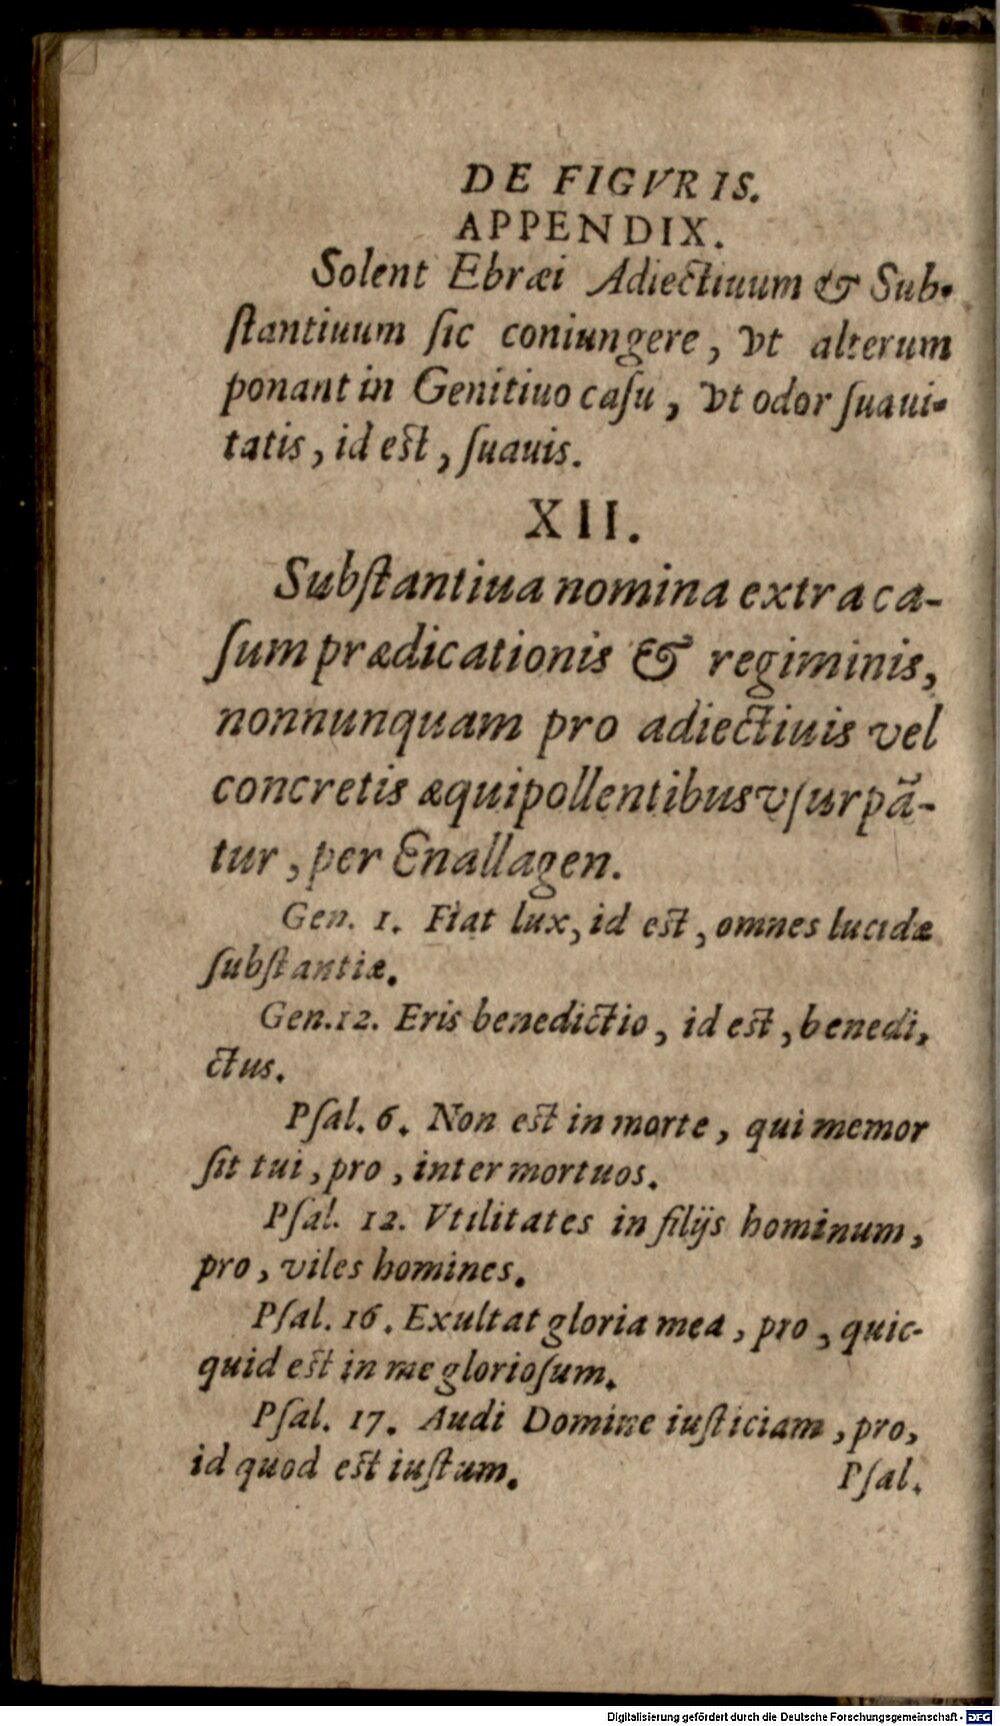 DE FIGVRIS.
APPENDIX.
Solent Ebræi Adiectiuum & Sub-
ſtantiuum ſic coniungere, vt alterum
ponant in Genitiuo caſu, vt odor ſuaui-
tatis, id eſt, ſuauis.
XII.
Subſtantiua nomina extra ca-
ſum prædicationis & regiminis,
nonnunquam pro adiectiuis vel
concretis æquipollentibus vſurpã-
tur, per Enallagen.
Gen. 1. Fiat lux, id eſt, omnes lucidæ
ſubſtantiæ.
Gen. 12. Eris benedictio, id eſt, benedi,
ctus.
Pſal. 6. Non eſt in morte, qui memor
ſit tui, pro, inter mortuos.
Pſal. 12. Vtilitates in filijs hominum,
pro, viles homines.
Pſal. 16. Exultat gloria mea, pro, quic-
quid eſt in me glorioſum.
Pſal. 17. Audi Domine iuſticiam, pro,
id quod eſt iuſtum.
Pſal.
Digitalisierung gefördert durch die Deutsche Forschungsgemeinschaft - DFG